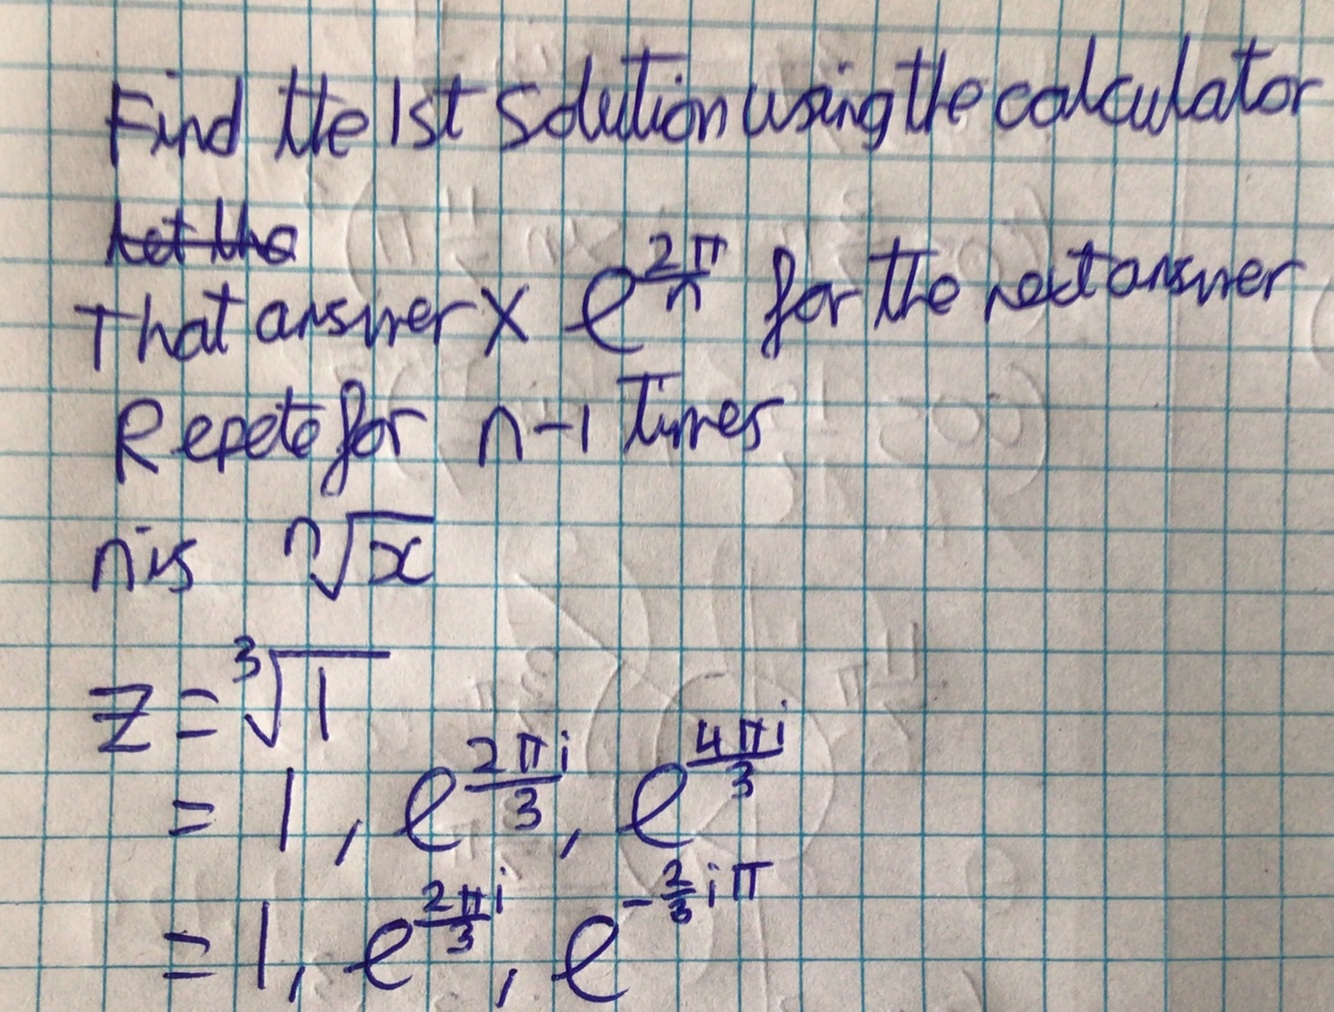 Find the 1st solution using the calculator
Let the
That answer × e^(2π/n) for the next answer
Repete for n-1 times
n is ⁿ√x
z = ³√1
= 1, e^(2πi/3), e^(4πi/3)
= 1, e^(2πi/3), e^(-2/3 iπ)